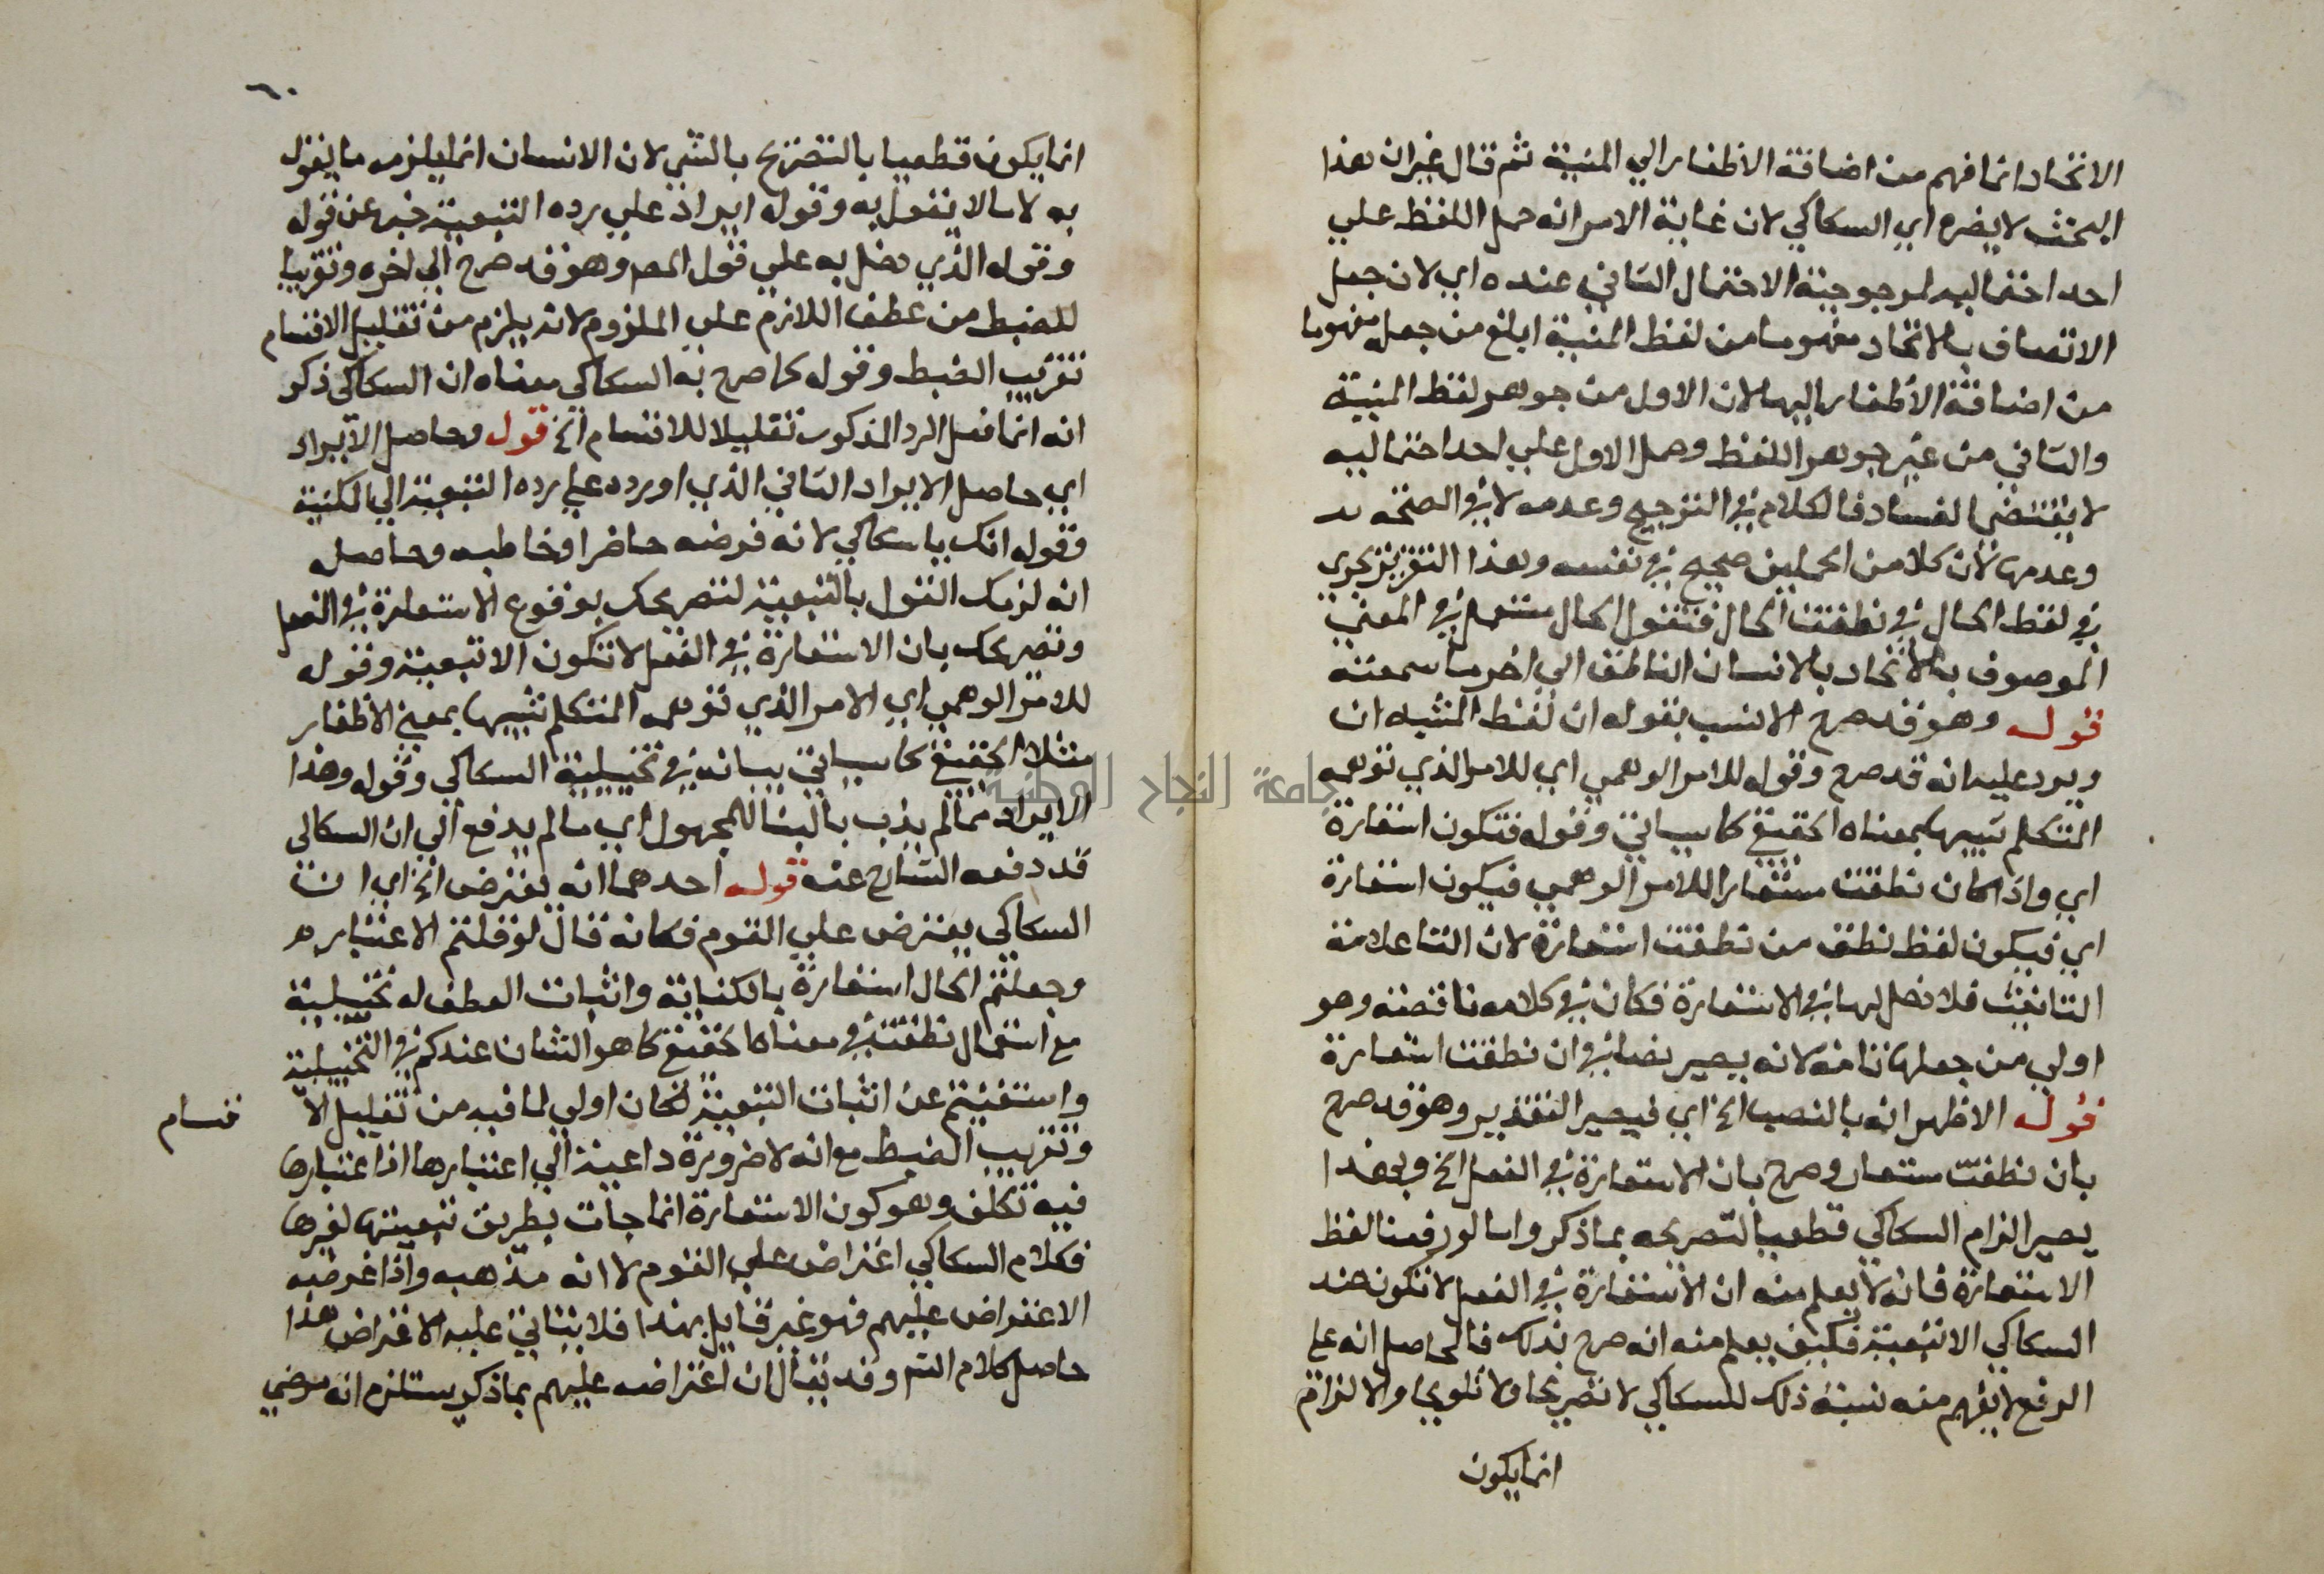 الاتحاد انما فهم من اضافة الاظفار الي المنية ثم قال غير ان هذا
البحث لا يضره اي السكاكي لان غاية الامر انه حمل اللفظ علي
احد احتماليه لمرجوحية الاحتمال الثاني عنده اي لان جعل
الاتصاف بالاتحاد مفهوما من لفظ المنية ابلغ من جعله مفهوما
من اضافة الاظفار اليها لان الاول من جوهر لفظ المنية
والثاني من غير جوهر اللفظ وحمل الاول علي احد احتماليه
لا يقتضي الفساد فالكلام في الترجيح وعدمه لا في الصحة
وعدمها لان كلا من الحملين صحيح في نفسه وهذا التقرير يجري
في لفظ الحال في نطقت الحال فتقول الحال مستعمل في المعني
الموصوف بالاتحاد بالانسان الناطق الي اخر ما سمعته
قوله وهو قد صرح الانسب بقوله ان لفظ المشبه ان
ويرد عليه انه قد صرح وقوله للامر الوهمي اي للامر الذي توهمه
المتكلم شبيها بمعناه الحقيقي كما سياتي وقوله فتكون استعارة
اي واذا كان نطقت مستعارا للامر الوهمي فيكون استعارة
اي فيكون لفظ نطق من نطقت استعارة لان التا علامة
التانيث فلا دخل لها في الاستعارة فكان في كلامه ناقصة وهو
اولي من جعلها تامة لانه يصير نصا في ان نطقت استعارة
قوله الاظهر انه بالنصب الخ اي فيصير التقدير وهو قد صرح
بان نطقت مستعار وصرح بان الاستعارة في الفعل الخ وبهذا
يصير الزام السكاكي قطعيا لتصريحه بما ذكر واما لو رفعنا لفظ
الاستعارة فانه لا يعلم منه ان الاستعارة في الفعل لا تكون عند
السكاكي الا تبعية فكيف يعلم منه انه صرح بذلك فالحاصل انه علي
الرفع لا يفهم منه نسبة ذلك للسكاكي لا تصريحا ولا تلويحا والالزام
انما يكون
٦٠
انما يكون قطعيا بالتصريح بالشي لان الانسان انما يلزمه ما يقول
به لا ما لا يقول به وقوله ايراد علي رده التبعية خبر عن قوله
وقوله الذي دخل به علي قول المص وهو قد صرح الي اخره وتقريبا
للضبط من عطف اللازم علي الملزوم لانه يلزم من تقليل الاقسام
تقريب الضبط وقوله كما صرح به السكاكي معناه ان السكاكي ذكر
انه انما فعل الرد المذكور تقليلا للاقسام الخ قوله وحاصل الايراد
اي حاصل الايراد الثاني الذي اورده علي رده التبعية الي المكنية
وقوله انك يا سكاكي لانه فرضه حاضرا وخاطبه وحاصله
انه لزمك القول بالتبعية لتصريحك بوقوع الاستعارة في الفعل
وتصريحك بان الاستعارة في الفعل لا تكون الا تبعية وقوله
للامر الوهمي اي الامر الذي توهمه المتكلم شبيها بمعني الاظفار
مثلا الحقيقي كما سياتي بيانه في تخييلية السكاكي وقوله وهذا
الايراد مما لم يذب بالبنا للمجهول اي مما لم يدفع الي ان السكاكي
قد دفعه الشارح عنه قوله احدهما انه يعترض الخ اي ان
السكاكي يعترض علي القوم فكانه قال لو قلتم الاعتبار
وجعلتم الحال استعارة بالكناية واثبات النطق له تخييلية
مع استعمال نطقت في معناه الحقيقي كما هو الشان عندكم في التخييلية
واستغنيتم عن اثبات التبعية لكان اولي لما فيه من تقليل الا
قسام
وتقريب الضبط مع انه لا ضرورة داعية الي اعتبارها اذ اعتبارها
فيه تكلف وهو كون الاستعارة انما جات بطريق تبعيتها لغيرها
فكلام السكاكي اعتراض علي القوم لا انه مذهبه واذا غرضه
الاعتراض عليهم فهو غير قايل بهذا فلا يتاتي عليه الاعتراض هذا
حاصل كلام الش وقد يقال ان اعتراضه عليهم بما ذكر يستلزم انه مرضي
جامعة النجاح الوطنية